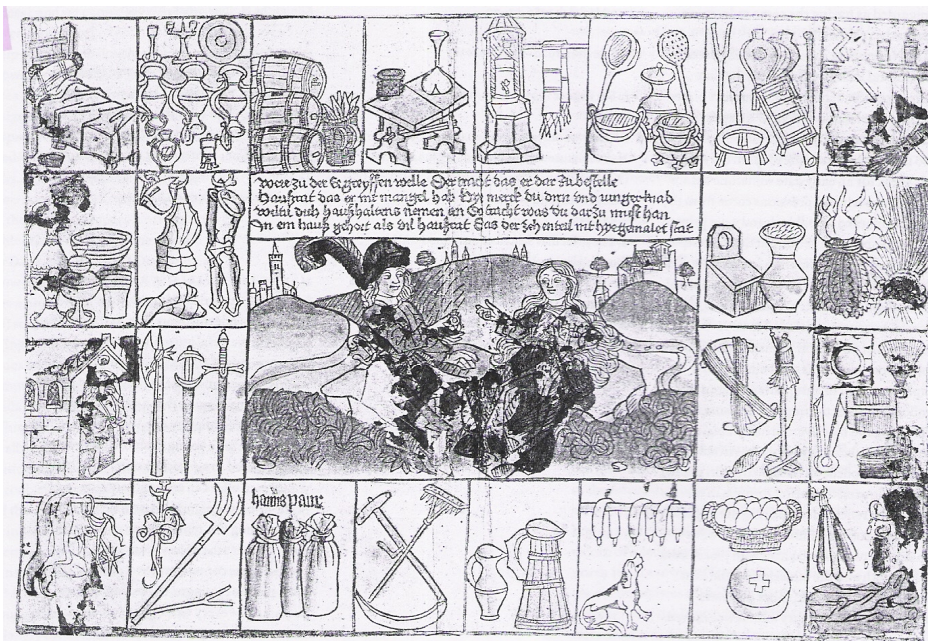 were zu der Ee greyffen welle Der tracht das er dar zu bestelle
Haußrat das er nit mangel hab Hye merck du dirn vnd iunger knab
weliu dich haußhaltens nemen an So tracht was du dar zu must han
In ein hauß gehort als vil haußrat Das der zehenteil nit hye gemalet stat
hanns paur